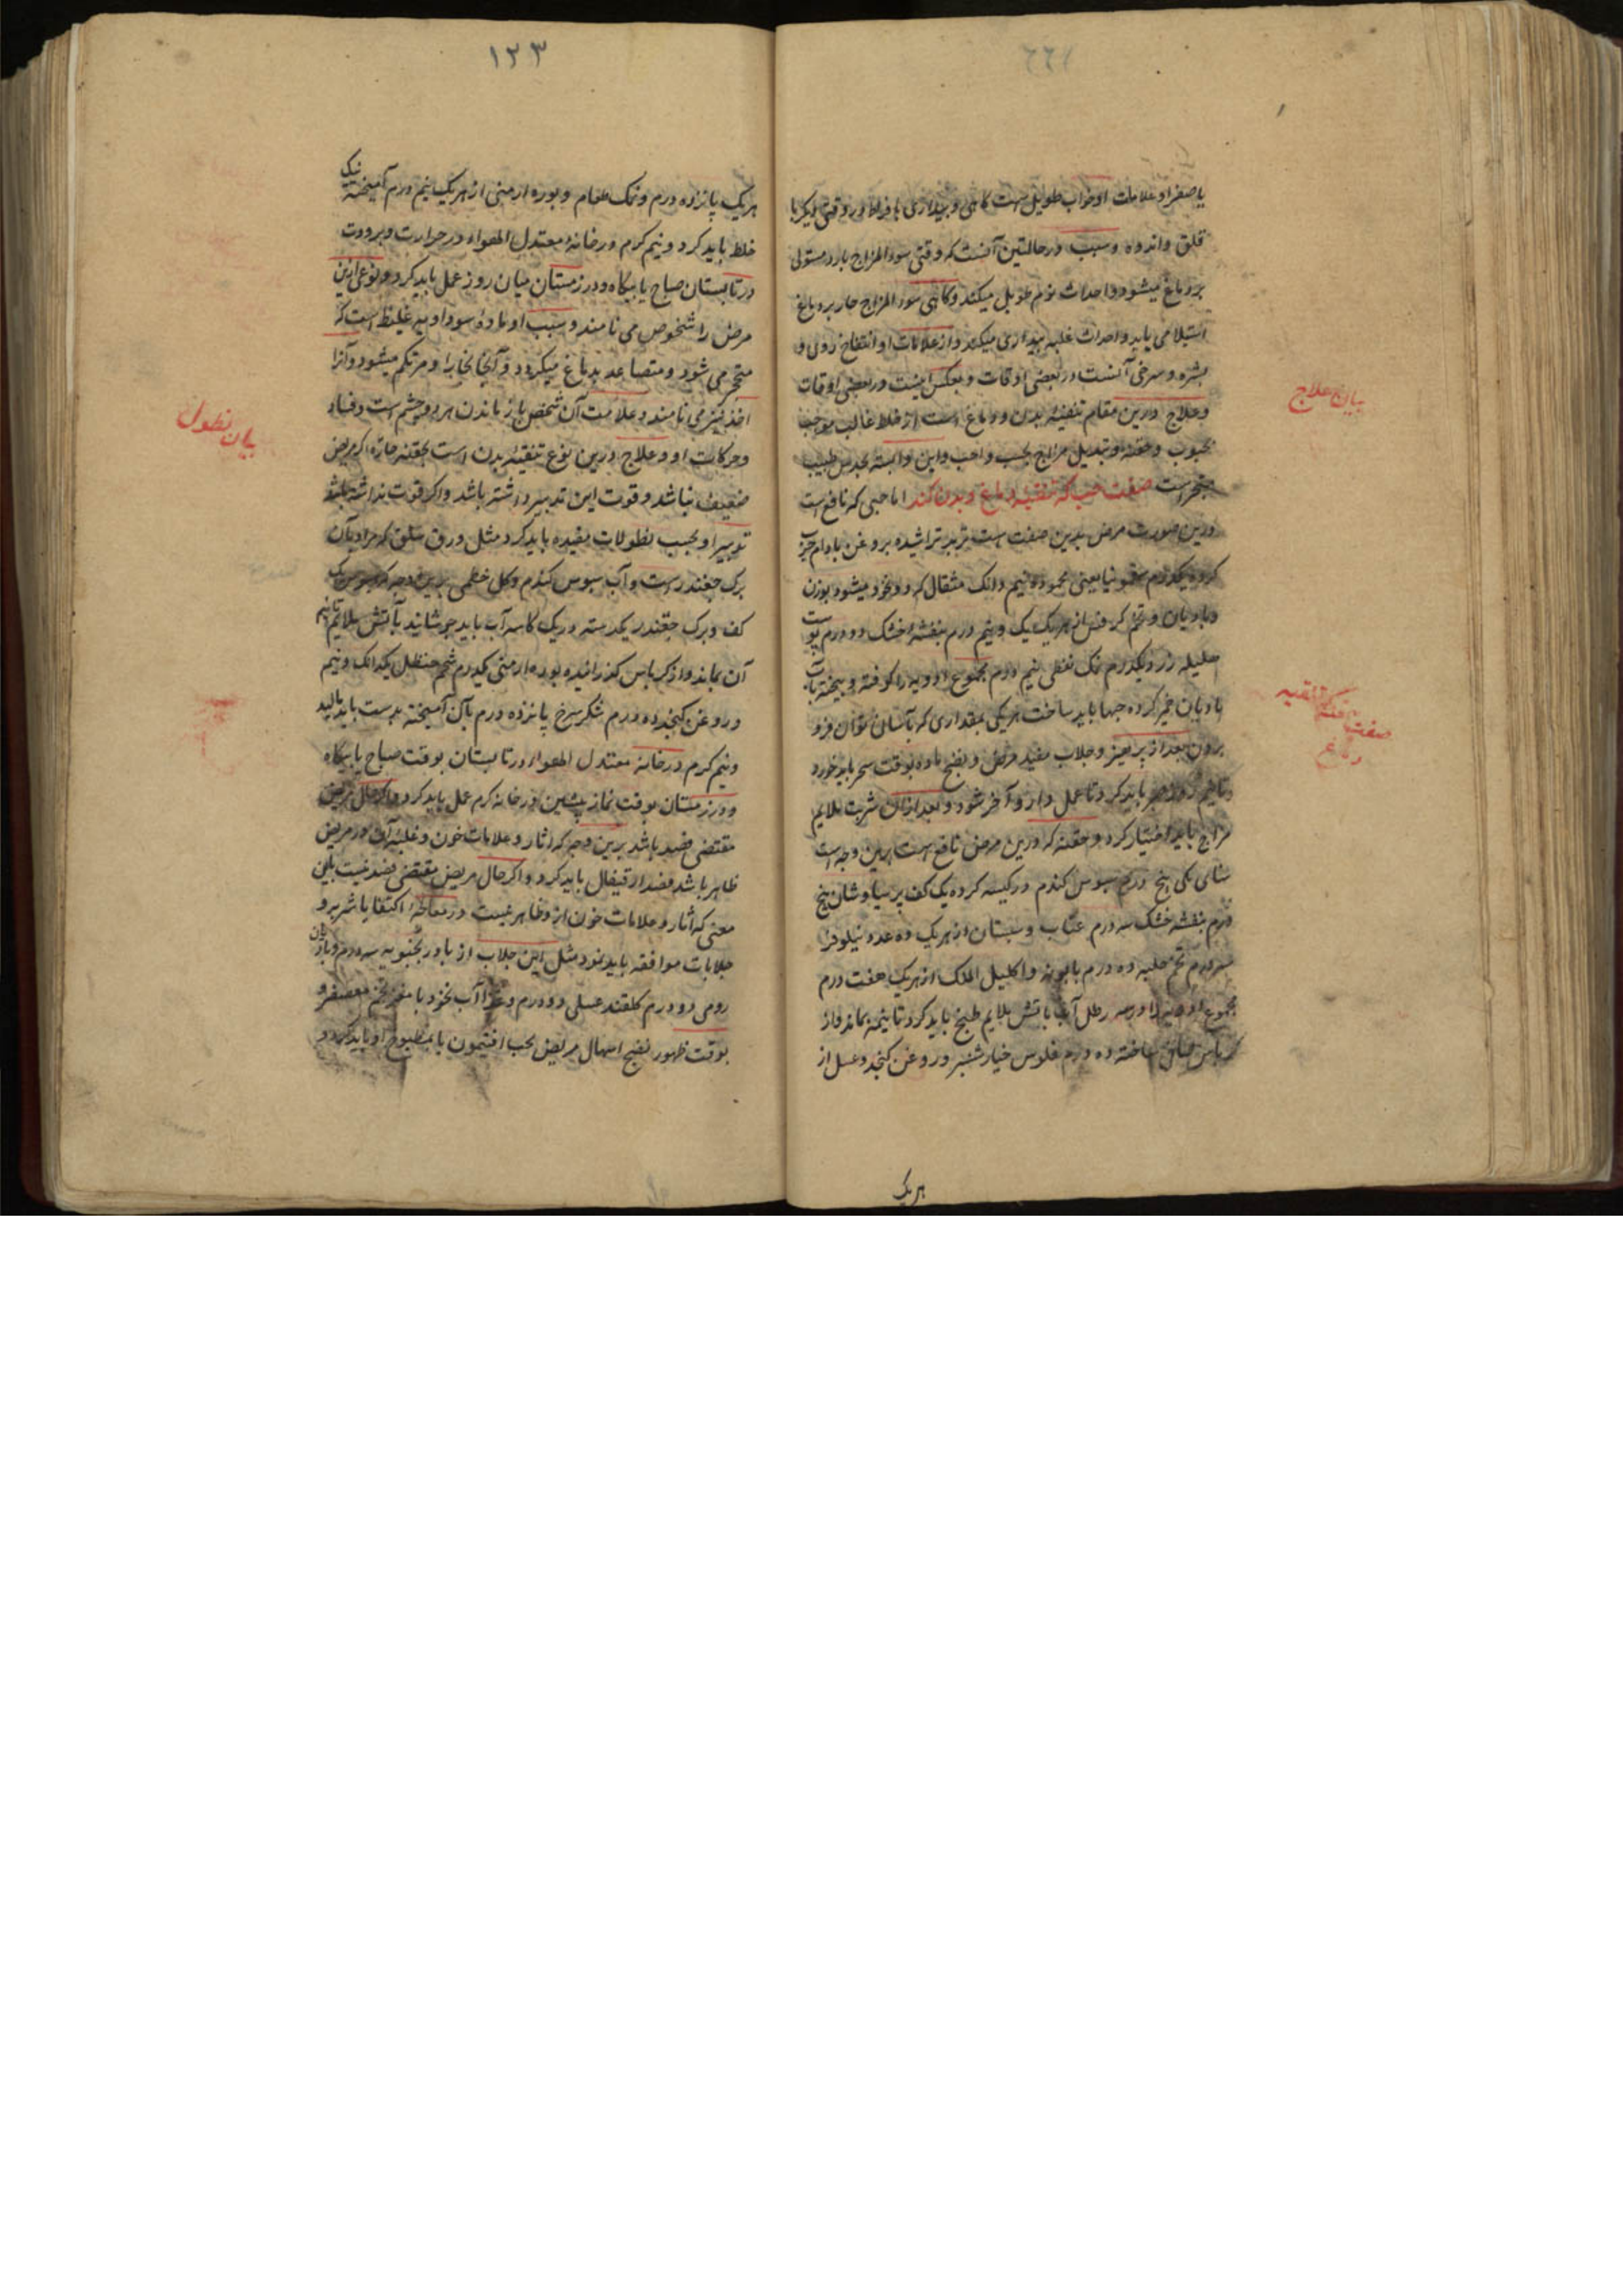 یا صفرا و علامات او خواب طویل است کاهی و بیداری بافراط در وقتی دیکر با
قلق و اندوه و سبب در حالتین آنست که وقتی سوء المزاج بارد مستولی
بر دماغ میشود و احداث نوم طویل میکند و کاهی سوء المزاج حار بر دماغ
استیلا می یابد و احداث غلبه بیداری میکند و از علامات او انتفاخ روی و
بشره و سرخی آنست در بعضی اوقات و بعکس اینست در بعضی اوقات
بیان علاج
و علاج درین مقام تنقیهٔ بدن و دماغ است از خلط غالب موجب
بحبوب و حقنه و تبدیل مزاج بحسب واجب و این وابسته بحدس طبیب
است صفت حب که تنقیه دماغ و بدن کند اما حبی که نافع است
درین صورت مرض بدین صفت است تربد تراشیده بروغن بادام چرب
کرده یکدرم سقمونیا یعنی محموده نیم دانک مثقال که دو نخود میشود بوزن
و بادیان و تخم کرفس از هر یک یک و نیم درم بنفشهٔ خشک دو درم پوست
هلیله زرد یکدرم نمک نفطی نیم درم مجموع ادویه را کوفته و بیخته بآب
صفت حقنه تنقیه
دماغ
بادیان خمیر کرده حبها باید ساخت هر یکی بمقداری که بآسانی توان فرو
بردن بعد از پرهیز و جلاب مفید مرض و نضج ماده بوقت سحر باید خورد
باید کرد تا عمل دارو آخر شود و بعد از آن شربت ملایم
مزاج باید اختیار کرد و حقنه که درین مرض نافع است برین وجه است
سنای مکی پنج درم سبوس کندم در کیسه کرده یک کف پرسیاوشان پنج
درم بنفشه خشک سه درم عناب و سبستان از هر یک ده عدد نیلوفر
تخم حلبه ده درم بابونه و اکلیل الملک از هر یک هفت درم
مجموع ادویه را در سه رطل آب بآتش ملایم طبخ باید کرد تا نیمه بماند و از
کرباس صاف ساخته ده درم فلوس خیارشنبر و روغن کنجد و عسل از
هر یک
۱۲۳
هر یک پانزده درم و نمک طعام و بوره ارمنی از هر یک نیم درم آمیخته نیک
خلط باید کرد و نیم کرم در خانهٔ معتدل الهواء در حرارت و برودت
در تابستان صباح یا بیکاه و در زمستان میان روز عمل باید کرد و نوعی ازین
مرض را شخوص می نامند و سبب او مادهٔ سوداویه غلیظ است که
متحجر می شود و متصاعد بدماغ میکردد و آنجا بخارا و مرتکم میشود و آنرا
اخذ نیز می نامند و علامت آن شخص باز ماندن هر دو چشم است و فساد
بیان نطول
و حرکات او و علاج درین نوع تنقیهٔ بدن است بحقنه حاره اکر مریض
ضعیف نباشد و قوت این تدبیر داشته باشد و اکر قوت نداشته باشد
تدبیر او بحسب نطولات مفیده باید کرد مثل ورق سلق که مراد بآن
برک چغندر است و آب سبوس کندم و کل خطمی برین وجه که سبوس یک
کف و برک چغندر یکدسته در یک کاسه آب باید جوشانید بآتش ملایم تا نیم
آن بماند و از کرباس کذرانیده بوره ارمنی یکدرم شحم حنظل یکدانک و نیم
و روغن کنجد ده درم شکر سرخ پانزده درم بآن آمیخته بدست باید مالید
و نیم کرم در خانهٔ معتدل الهواء در تابستان بوقت صباح یا بیکاه
و در زمستان بوقت نماز پیشین در خانه کرم عمل باید کرد و اکر حال مریض
مقتضی فصد باشد برین وجه که اثار و علامات خون و غلبهٔ آن در مریض
ظاهر باشد فصد از قیفال باید کرد و اکر حال مریض مقتضی فصد نیست باین
معنی که اثار و علامات خون ازو ظاهر نیست در معالجه اکتفا باشربه و
جلابات موافقه باید نمود مثل این جلاب از بادرنجبویه سه درم و بادیان
رومی دو درم کلقند عسلی ده درم و غذا آب نخود با مغز تخم معصفر و
بوقت ظهور نضج اسهال مریض بحب افتیمون یا بمطبوخ او باید کرد و